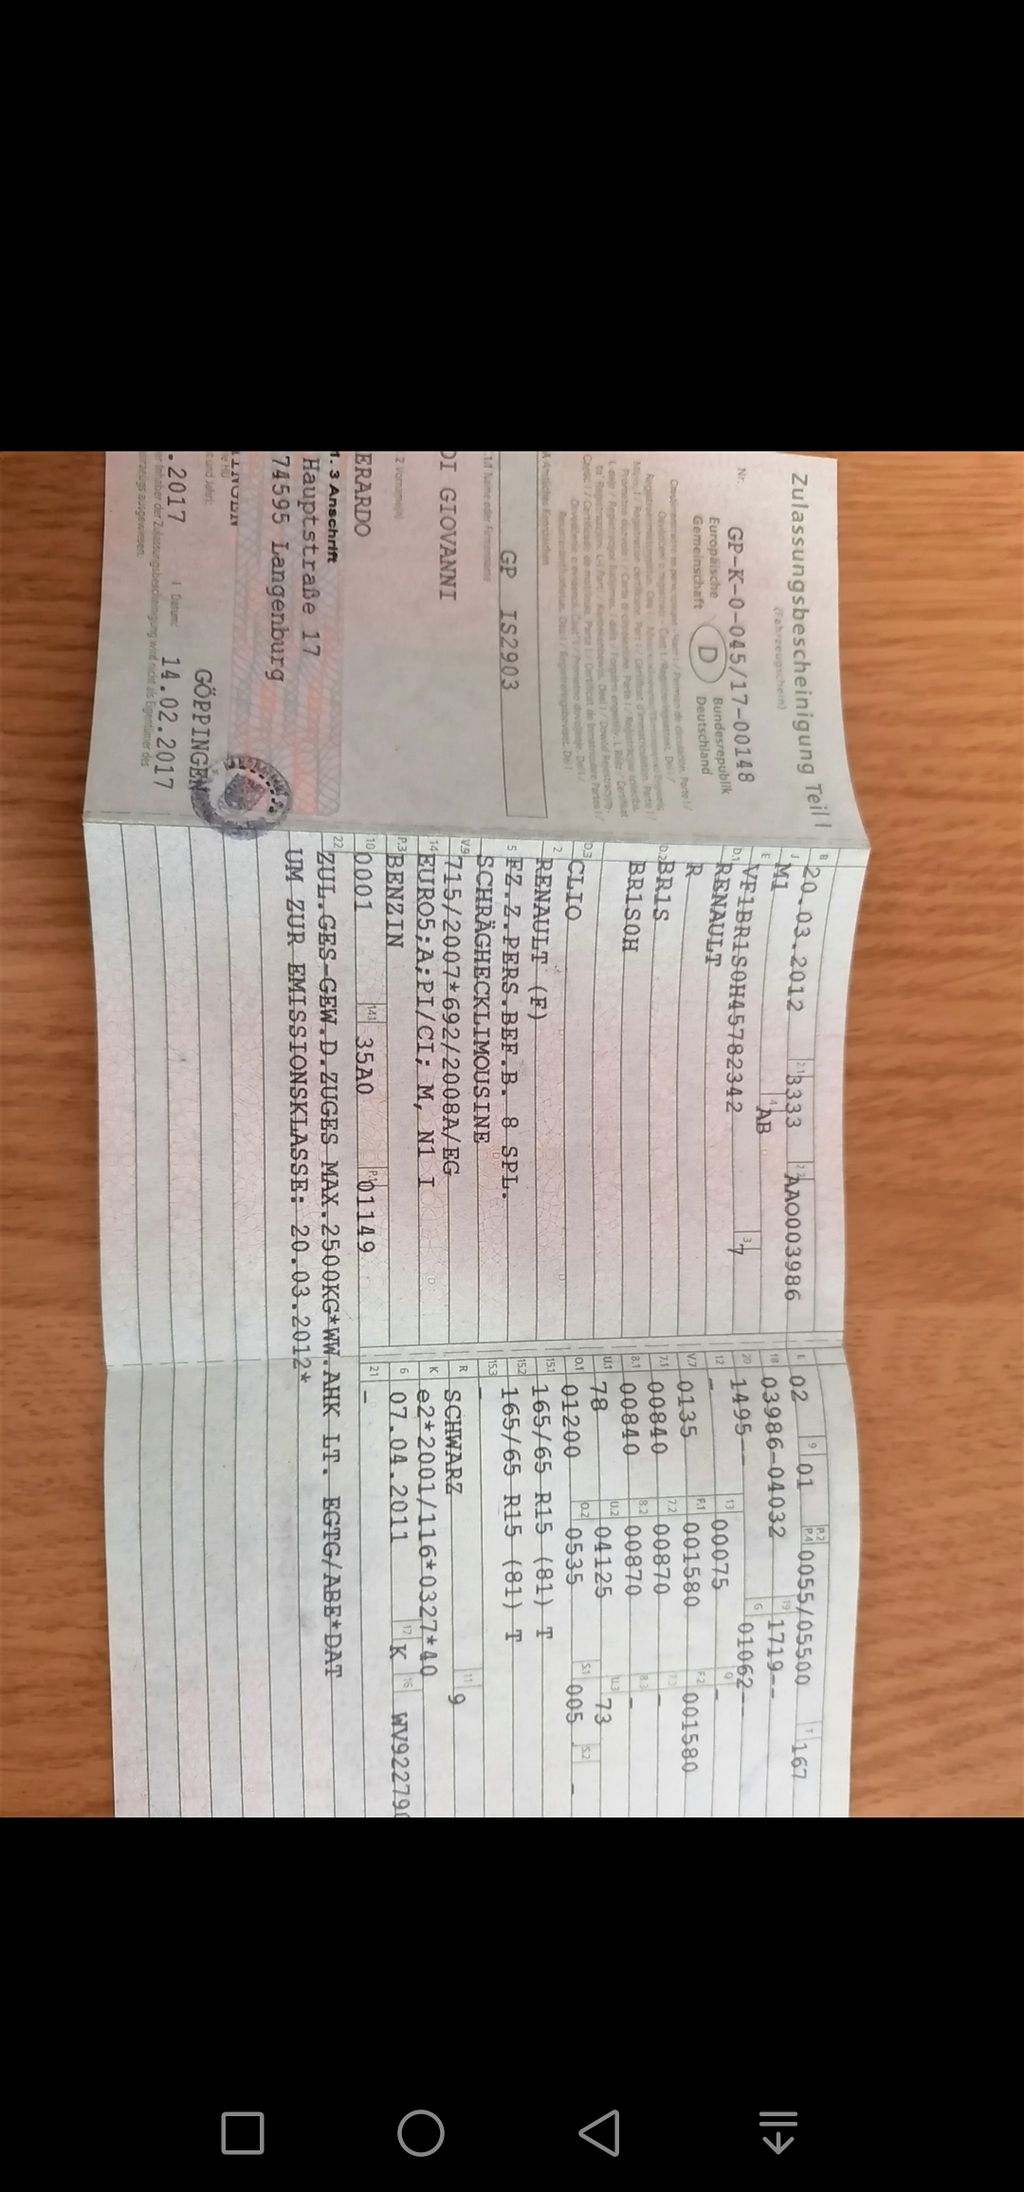 Zulassungsbescheinigung Teil I
(Fahrzeugschein)
Nr. GP-K-0-045/17-00148
Europäische Gemeinschaft
D
Bundesrepublik Deutschland
GP IS2903
C.1.1 Name oder Firmenname
DI GIOVANNI
ERARDO
1.3 Anschrift
Hauptstraße 17
74595 Langenburg
.2017
Datum:
14.02.2017
GÖPPINGEN
B 20.03.2012 2.1 3333 2.2 AAO003986
J M1 4 AB
E VF1BR1S0H45782342 3 7
D.1 RENAULT
R
D.2 BR1S
BR1S0H
D.3 CLIO
2 RENAULT (F)
5 FZ.Z.PERS.BEF.B. 8 SPL.
SCHRÄGHECKLIMOUSINE
V.9 715/2007*692/2008A/EG
14 EURO5;A;PI/CI; M, N1 I
P.3 BENZIN
10 0001 14.1 35A0 P.1 01149
L 02 9 01 P.2 P.4 0055/05500 T 167
18 03986-04032 19 1719--
20 1495-- G 01062--
12 - 13 00075 Q -
V.7 0135 F.1 001580 F.2 001580
7.1 00840 7.2 00870 7.3 -
8.1 00840 8.2 00870 8.3 -
U.1 78 U.2 04125 U.3 73
O.1 01200 O.2 0535 S.1 005 S.2 -
15.1 165/65 R15 (81) T
15.2 165/65 R15 (81) T
15.3 -
R SCHWARZ 11 9
K e2*2001/116*0327*40
6 07.04.2011 17 K 16 WV92279
21 -
22 ZUL.GES-GEW.D.ZUGES MAX.2500KG*WW.AHK LT. EGTG/ABE*DAT
UM ZUR EMISSIONSKLASSE: 20.03.2012*